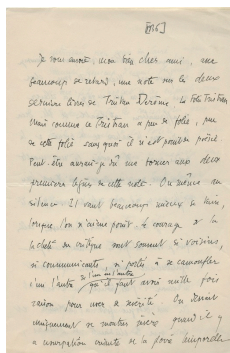 Je vous envoie, mon bien cher ami, avec
beaucoup de retard, une note sur les deux
derniers livres de Tristan Derème. La folie Tristan
mais comme ce Tristan a peu de folie, peu
de cette folie sans quoi il n'est point de poésie.
Peut-être aurais-je dû me borner aux deux
premières lignes de cette note. Ou même au
silence. Il vaut beaucoup mieux se taire,
lorsque l'on n'aime point. Le courage et la
lâcheté du critique sont souvent si voisins,
si communicants, si portés à se camoufler
l'un l'autre
qu'il faut avoir mille fois
raison pour user de sévérité. On devrait
uniquement se montrer sévère quand il y
a